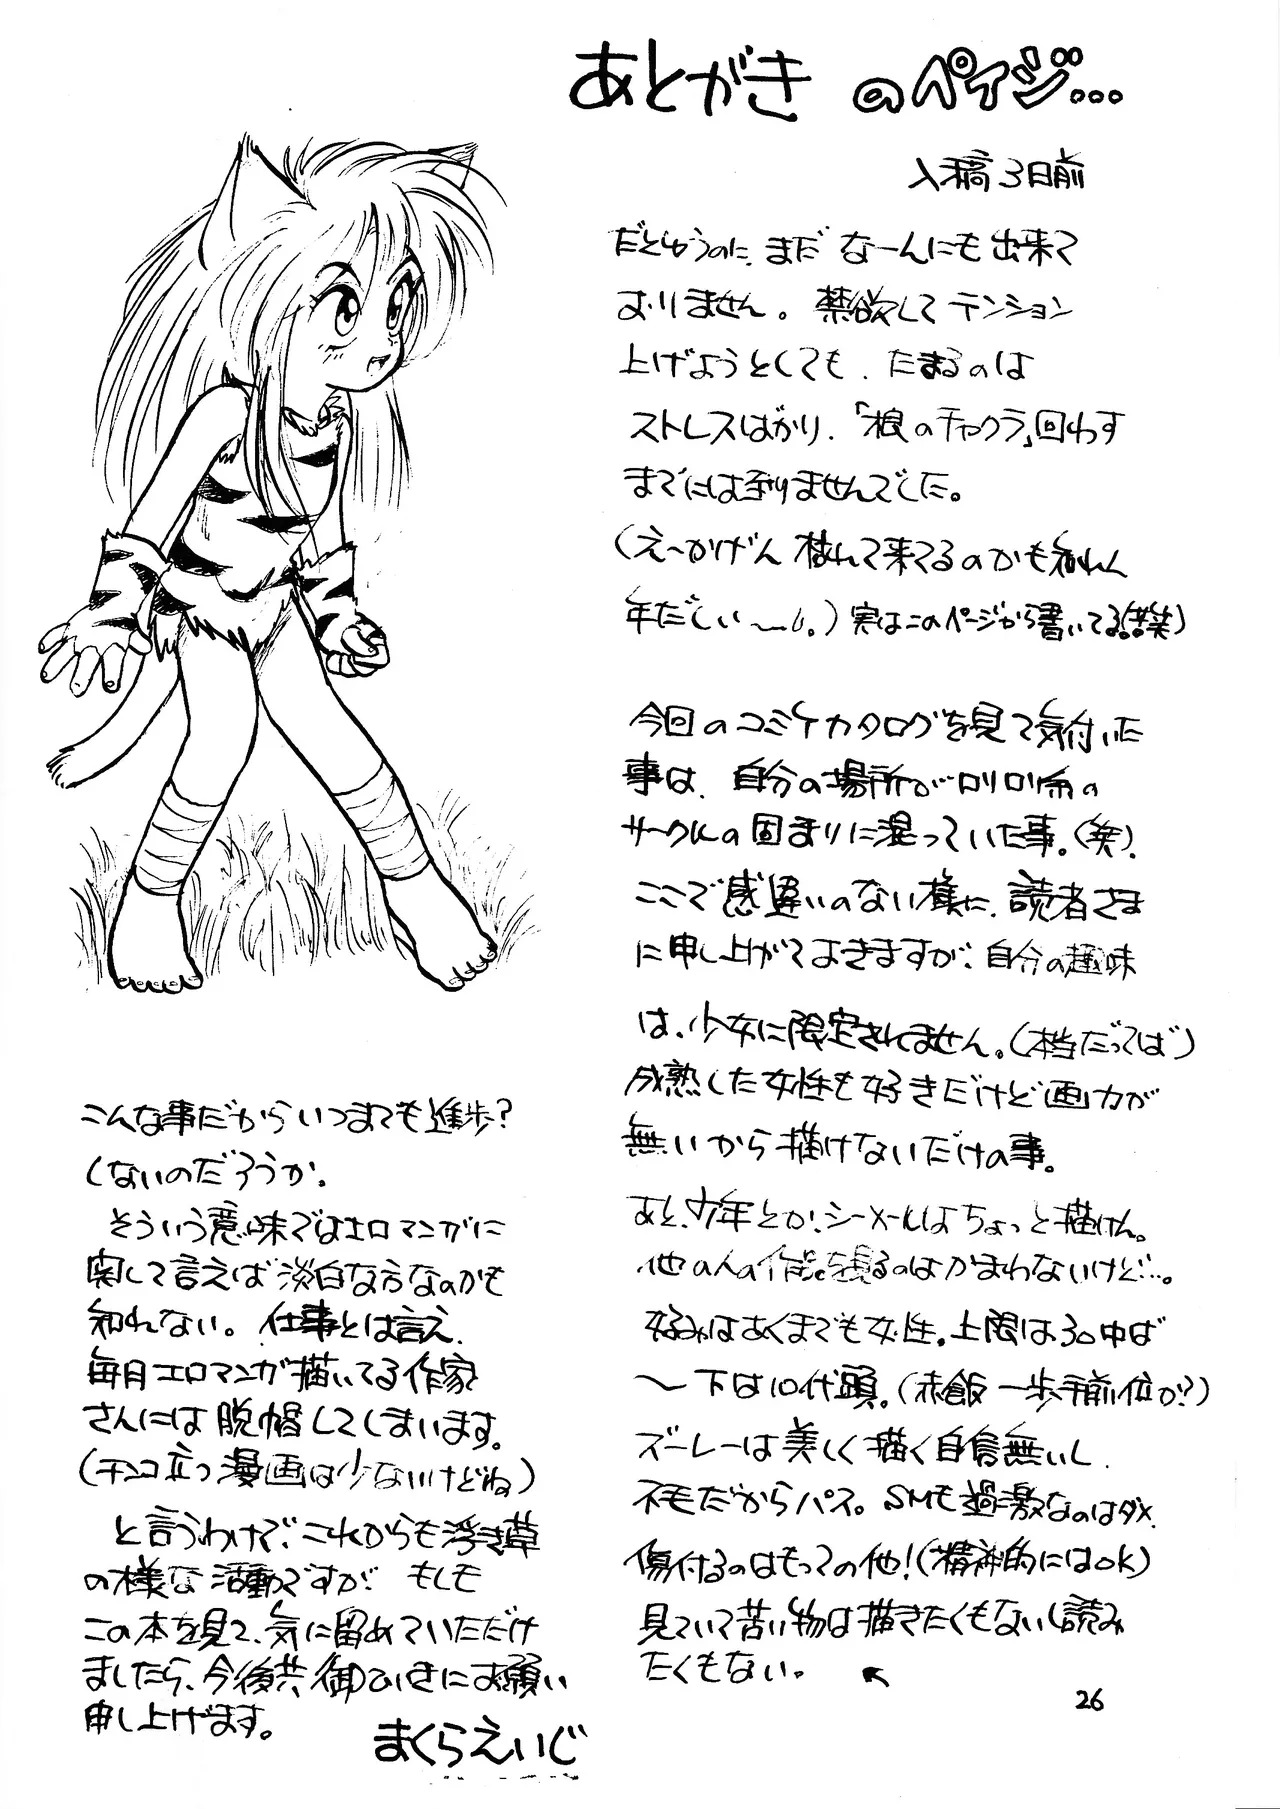 あとがき のペイジ…
入稿3日前
だとゆうのに、まだ なーんにも出来て
おりません。禁欲して テンション
上げようとしても、たまるのは
ストレスばかり、「根のチャクラ」回わす
までには到りませんでした。
(えーかげん 枯れて来てるのかも知れん
年だしぃ〜。) 実はこのページから書いてる(苦笑)
今回のコミケカタログを見て気付いた
事は、自分の場所がロリロリ系の
サークルの固まりに混っていた事。(笑)。
ここで感違いのない様に、読者さま
に申し上がておきますが、自分の趣味
は、少女に限定されてません。(本当だってば)
成熟した女性も好きだけど画力が
無いから描けないだけの事。
あと、少年とか、シーメールはちょっと描けん。
他の人の作品を観るのはかまわないけど…。
好みはあくまでも女性。上限は30中ば
〜下は10代頭。(赤飯 一歩手前位か?)
ズーレーは美しく描く自信無いし、
不毛だからパス。SMも過激なのはダメ、
傷付るのはもっての他!(精神的にはOK)
見ていて苦い物は描きたくもないし読み
たくもない。
こんな事だからいつまでも進歩?
しないのだろうか。
そういう意味ではエロマンガに
関して言えば淡白な方なのかも
知れない。仕事とは言え、
毎月エロマンガ描いてる作家
さんには脱帽してしまいます。
(チンコ立つ漫画は少ないけどね)
と言うわけで、これからも浮き草
の様な活動ですが、もしも
この本を見て、気に留めていただけ
ましたら、今後共、御ひいきにお願い
申し上げます。
まくらえいじ
26